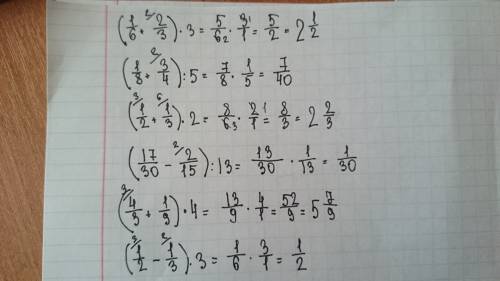 (1/6 + ²/2/3) · 3 = 5/6₂ · 3¹/1 = 5/2 = 2 1/2
(1/8 + ²/3/4) : 5 = 7/8 · 1/5 = 7/40
(³/1/2 + ⁶/1/3) · 2 = 8/6₃ · 2¹/1 = 8/3 = 2 2/3
(17/30 - ²/2/15) : 13 = 13/30 · 1/13 = 1/30
(³/4/3 + 1/9) · 4 = 13/9 · 4/1 = 52/9 = 5 7/9
(³/1/2 - ²/1/3) · 3 = 1/6 · 3/1 = 1/2